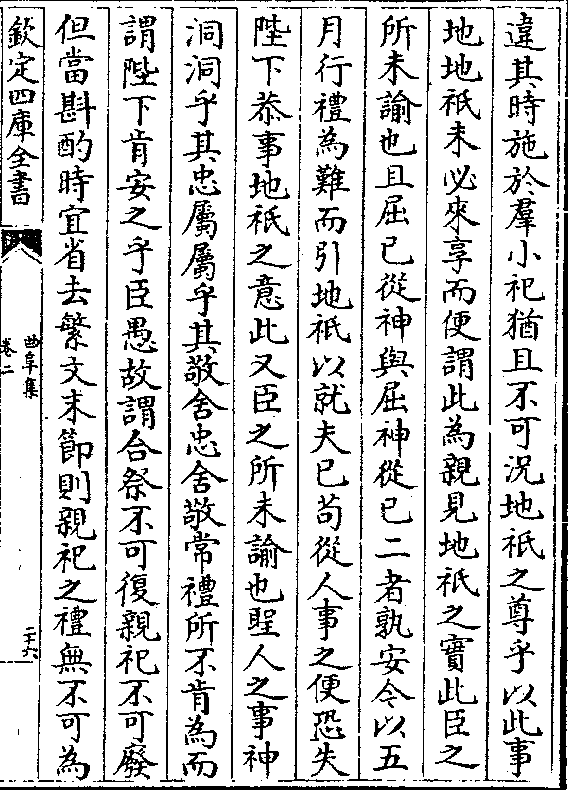 違其時施於羣小祀猶且不可況地祇之尊乎以此事
地地祇未必來享而便謂此為親見地祇之實此臣之
所未諭也且屈已從神與屈神從已二者孰安今以五
月行禮為難而引地祇以就夫已苟從人事之便恐失
陛下恭事地祇之意此又臣之所未諭也聖人之事神
洞洞乎其忠屬屬乎其敬舍忠舍敬常禮所不肯為而
謂陛下肯安之乎臣愚故謂合祭不可復親祀不可廢
但當斟酌時宜省去繁文末節則親祀之禮無不可為
欽定四庫全書
曲阜集
卷二
二十六